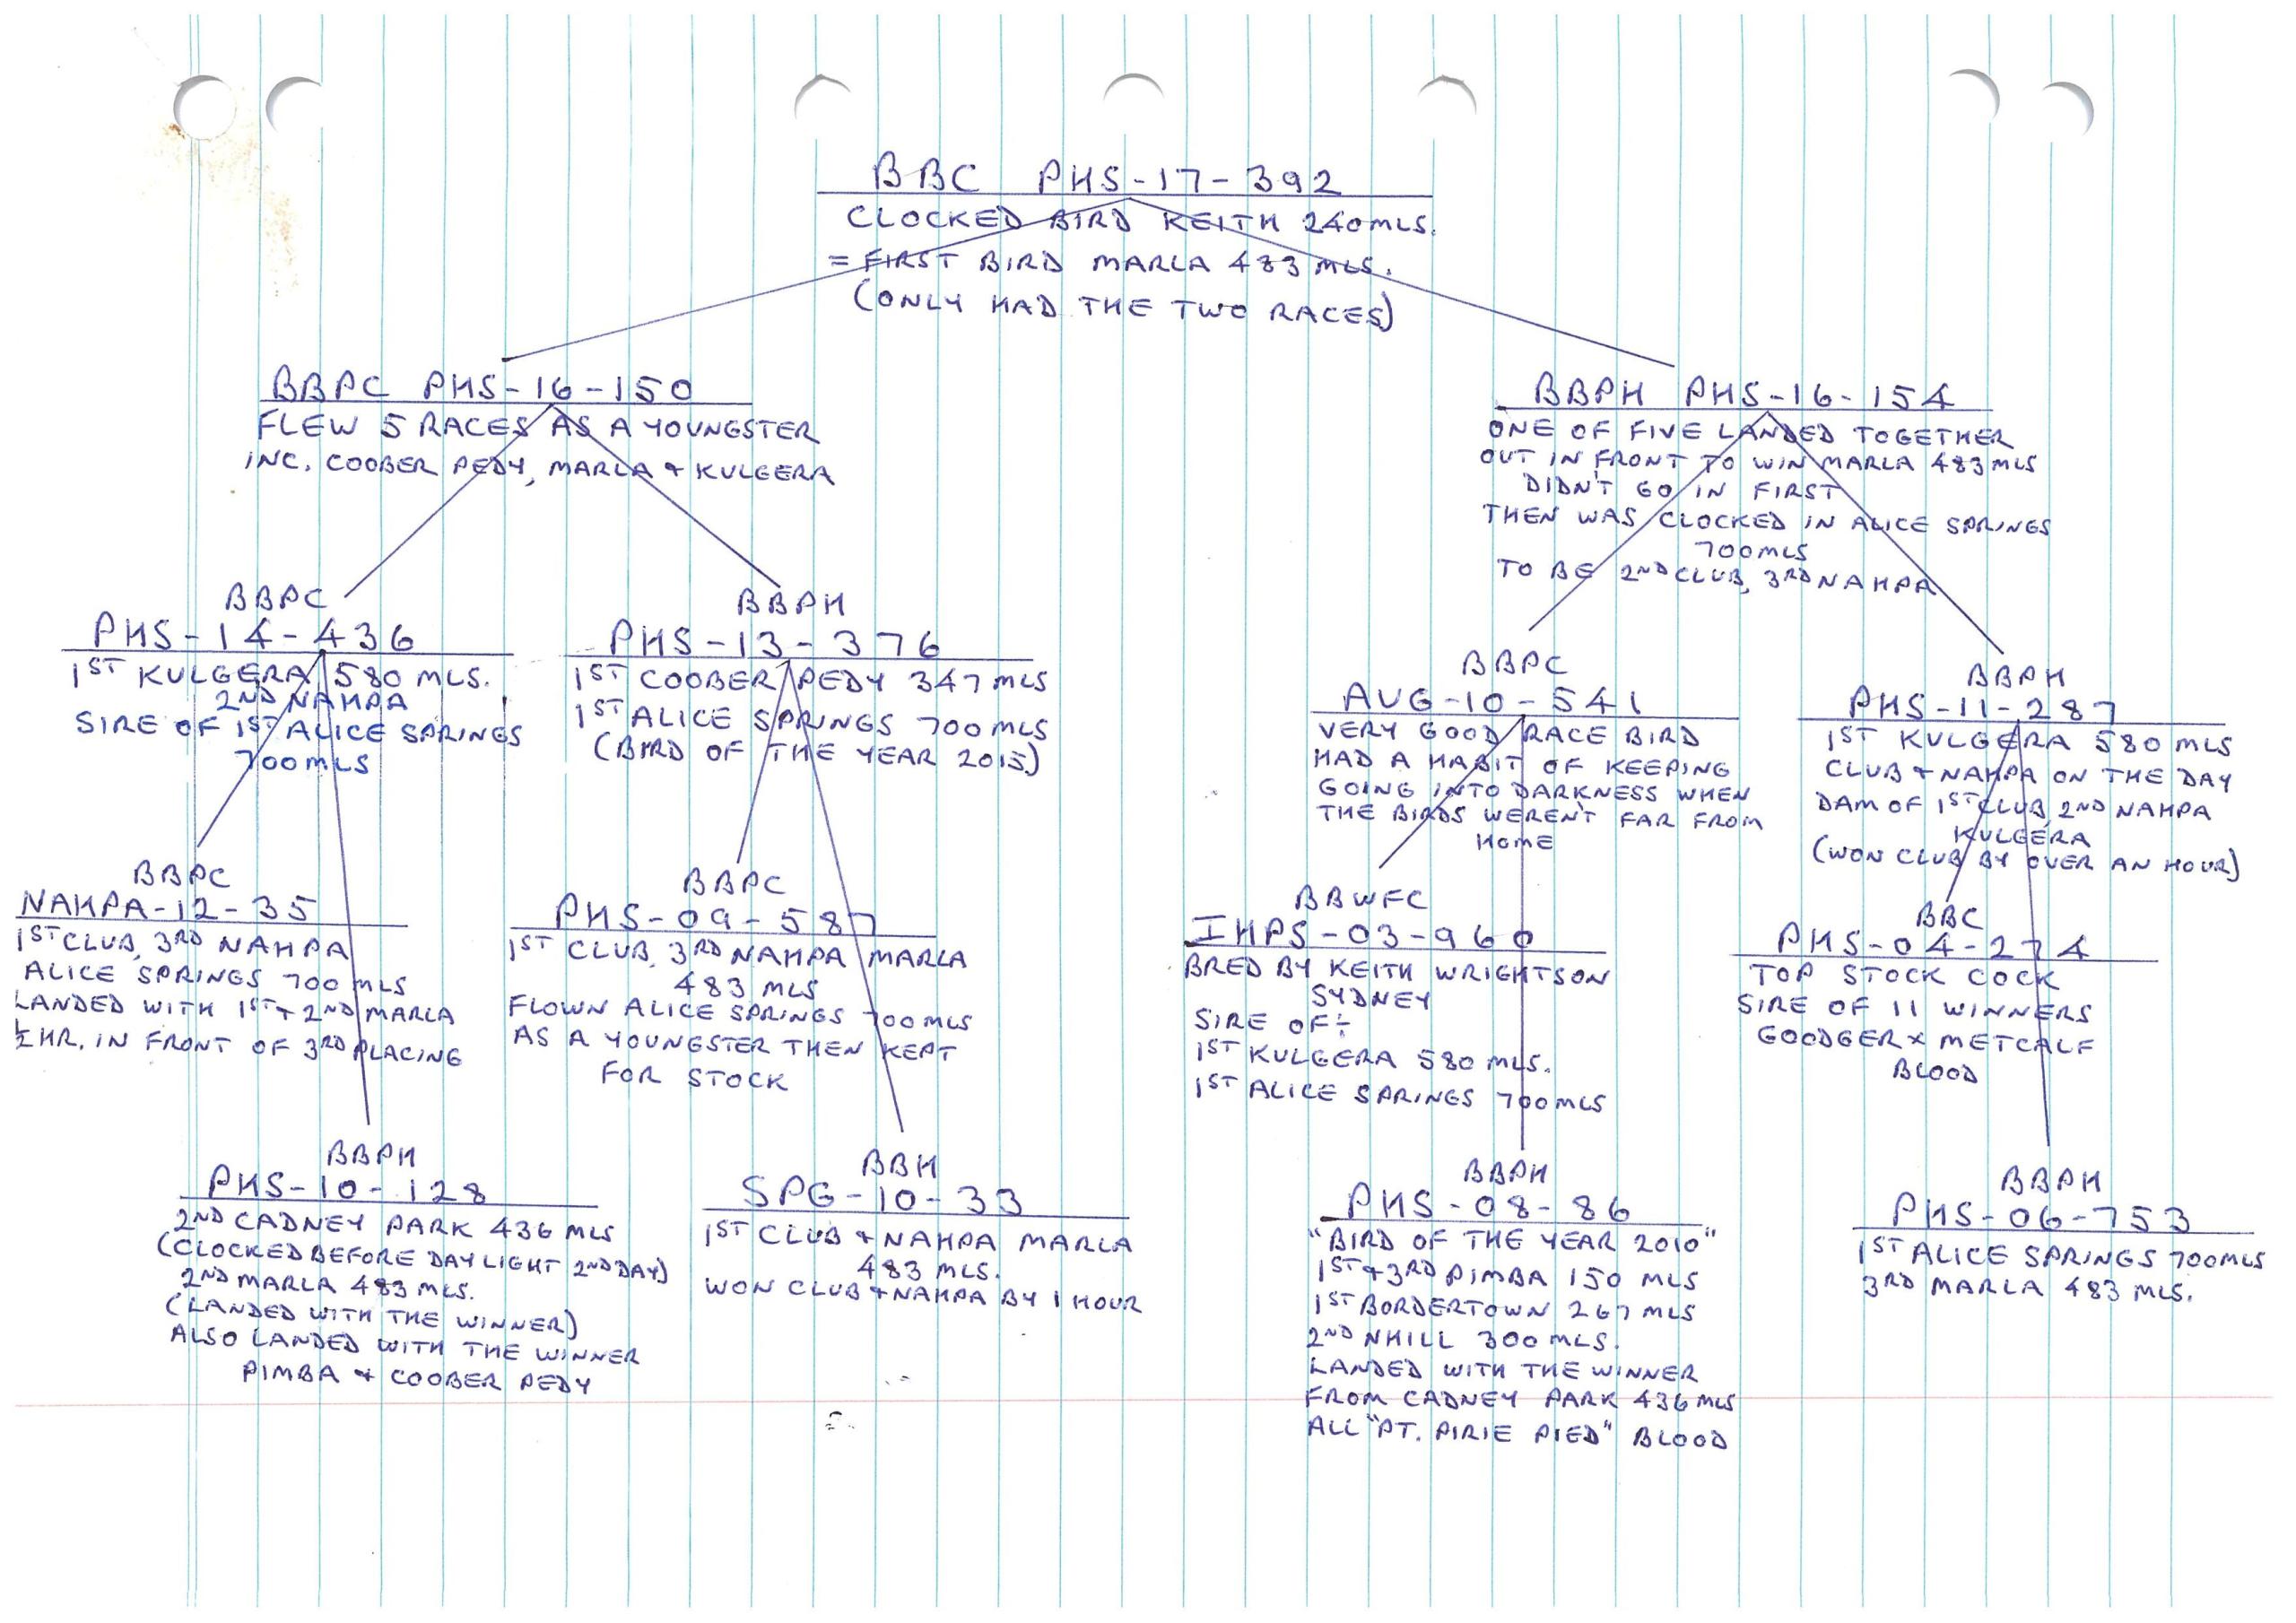 BBC PHS-17-392
CLOCKED BIRD KEITH 240MLS.
= FIRST BIRD MARLA 483 MLS.
(ONLY HAD THE TWO RACES)
BBPC PHS-16-150
FLEW 5 RACES AS A YOUNGSTER
INC. COOBER PEDY, MARLA + KULGERA
BBPH PHS-16-154
ONE OF FIVE LANDED TOGETHER
OUT IN FRONT TO WIN MARLA 483MLS
DIDN'T GO IN FIRST
THEN WAS CLOCKED IN ALICE SPRINGS
700MLS
TO BE 2ND CLUB, 3RD NAHPA
BBPC
PHS-14-436
1ST KULGERA 580 MLS.
2ND NAHPA
SIRE OF 1ST ALICE SPRINGS
700MLS
BBPH
PHS-13-376
1ST COOBER PEDY 347MLS
1ST ALICE SPRINGS 700MLS
(BIRD OF THE YEAR 2015)
BBPC
AUG-10-541
VERY GOOD RACE BIRD
HAD A HABIT OF KEEPING
GOING INTO DARKNESS WHEN
THE BIRDS WEREN'T FAR FROM
HOME
BBPH
PHS-11-287
1ST KULGERA 580MLS
CLUB + NAHPA ON THE DAY
DAM OF 1ST CLUB, 2ND NAHPA
KULGERA
(WON CLUB BY OVER AN HOUR)
BBPC
NAHPA-12-35
1ST CLUB, 3RD NAHPA
ALICE SPRINGS 700MLS
LANDED WITH 1ST + 2ND MARLA
½HR. IN FRONT OF 3RD PLACING
BBPC
PHS-09-587
1ST CLUB, 3RD NAHPA MARLA
483 MLS
FLOWN ALICE SPRINGS 700MLS
AS A YOUNGSTER THEN KEPT
FOR STOCK
BBWFC
IHPS-03-960
BRED BY KEITH WRIGHTSON
SYDNEY
SIRE OF÷
1ST KULGERA 580 MLS.
1ST ALICE SPRINGS 700MLS
BBC
PHS-04-274
TOP STOCK COCK
SIRE OF 11 WINNERS
GOODGER X METCALF
BLOOD
BBPH
PHS-10-128
2ND CADNEY PARK 436 MLS
(CLOCKED BEFORE DAYLIGHT 2ND DAY)
2ND MARLA 483 MLS.
(LANDED WITH THE WINNER)
ALSO LANDED WITH THE WINNER
PIMBA + COOBER PEDY
BBH
SPG-10-33
1ST CLUB + NAHPA MARLA
483 MLS.
WON CLUB + NAHPA BY 1 HOUR
BBPH
PHS-08-86
"BIRD OF THE YEAR 2010"
1ST + 3RD PIMBA 150 MLS
1ST BORDERTOWN 267 MLS
2ND NHILL 300MLS.
LANDED WITH THE WINNER
FROM CADNEY PARK 436MLS
ALL "PT. PIRIE PIED" BLOOD
BBPH
PHS-06-753
1ST ALICE SPRINGS 700MLS
3RD MARLA 483 MLS.